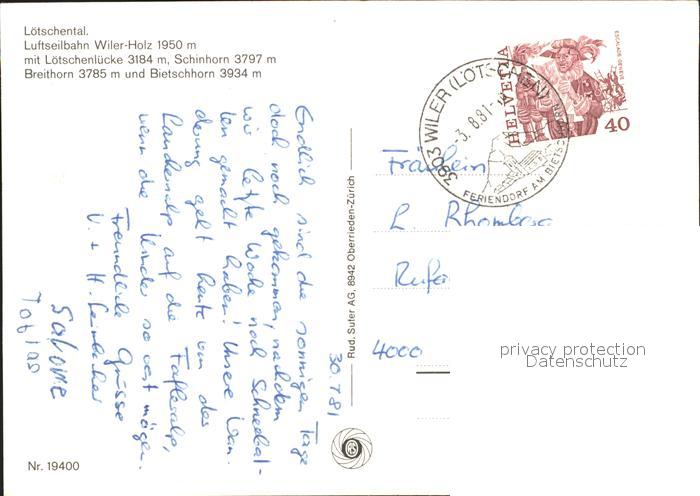 Lötschental.
Luftseilbahn Wiler-Holz 1950 m
mit Lötschenlücke 3184 m, Schinhorn 3797 m
Breithorn 3785 m und Bietschhorn 3934 m
30.7.81
Endlich sind die sonnigen Tage
doch noch gekommen, nachdem
wir letzte Woche noch Schneebal-
len gemacht haben! Unsere Wan-
derung geht heute von der
Lauchernalp auf die Fafleralp,
wenn die Kinder so weit mögen.
Freundliche Grüsse
U. + H.
Salome
Tobias
Nr. 19400
Rud. Suter AG, 8942 Oberrieden-Zürich
3903 WILER (LÖTSCHEN)
3.8.81
FERIENDORF AM BIETSCHHORN
HELVETIA
ESCALADE GENÈVE
40
Fräulein
L. Rhomberg
Rufe
4000
privacy protection
Datenschutz